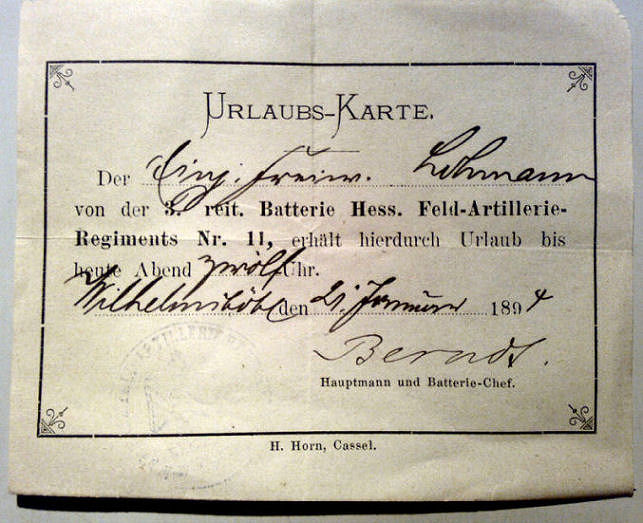 URLAUBS-KARTE.
Der Einj. Freiw. Lehmann
von der 3. reit. Batterie Hess. Feld-Artillerie-
Regiments Nr. 11, erhält hierdurch Urlaub bis
heute Abend zwölf Uhr.
Wilhelmshöhe den 21. Januar 1894
Berndt.
Hauptmann und Batterie-Chef.
H. Horn, Cassel.